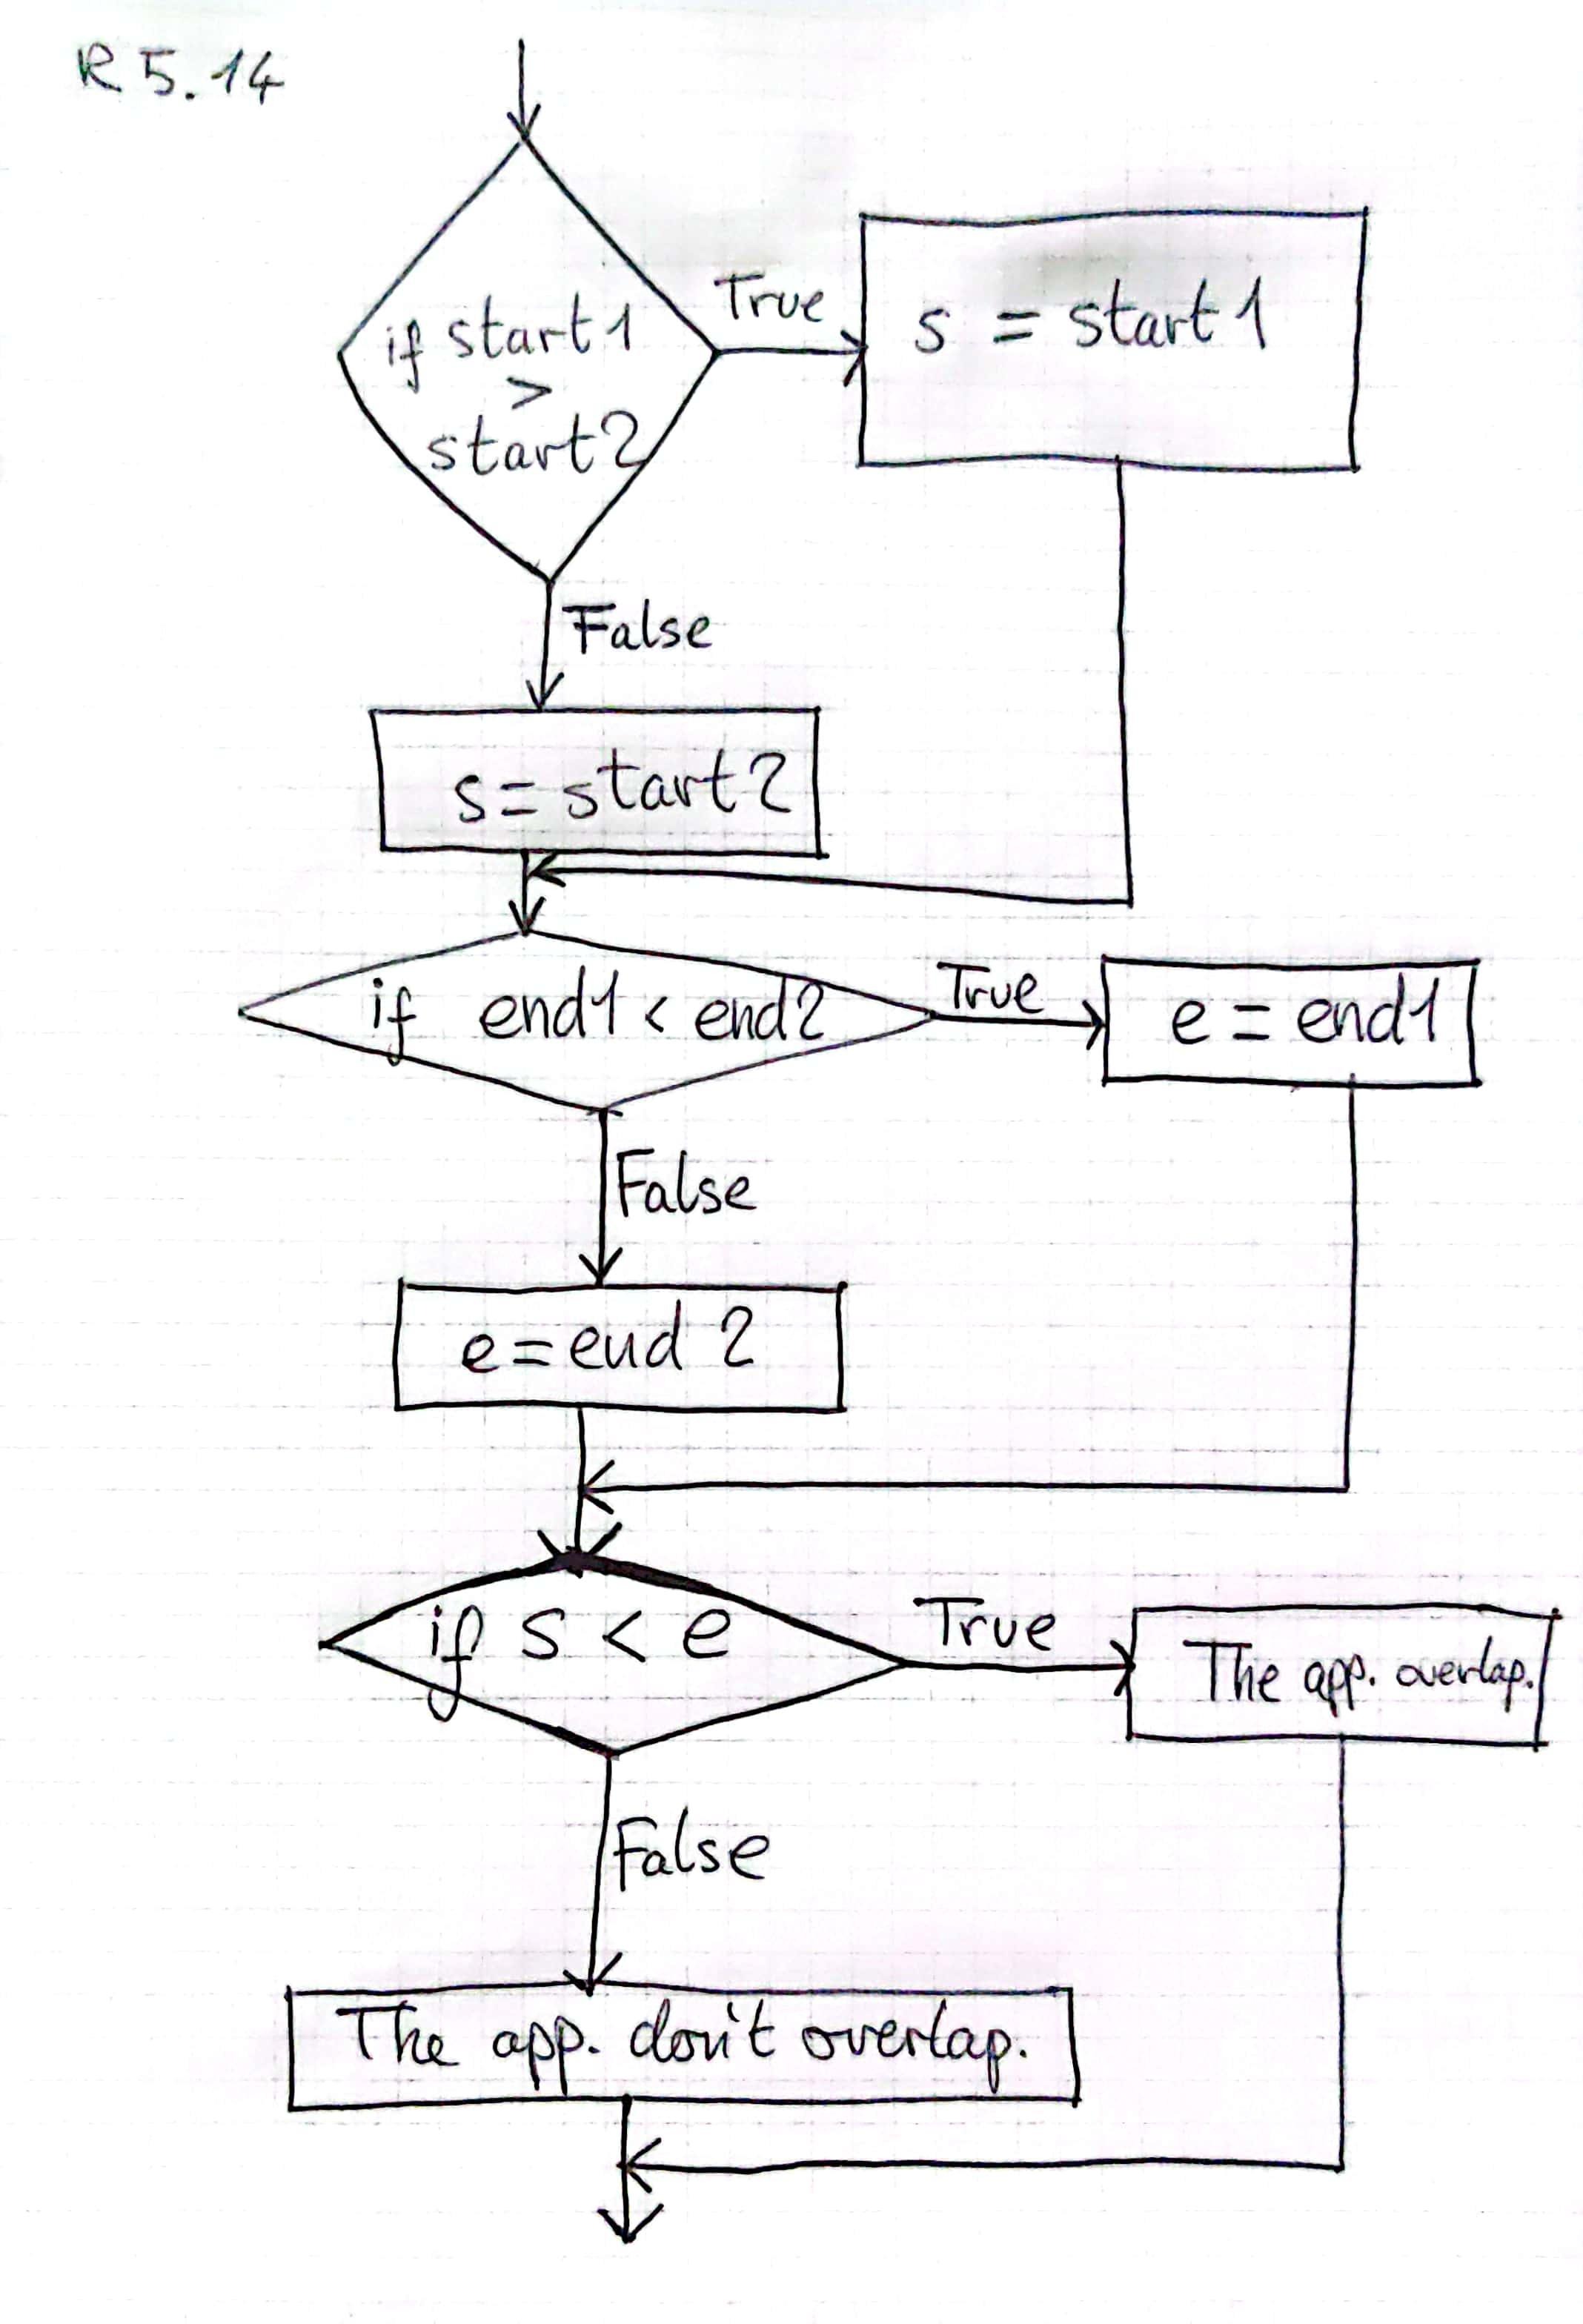 R 5.14
if start1
>
start2
True
s = start1
False
s = start2
if end1 < end2
True
e = end1
False
e = end 2
if s < e
True
The app. overlap.
False
The app. don't overlap.